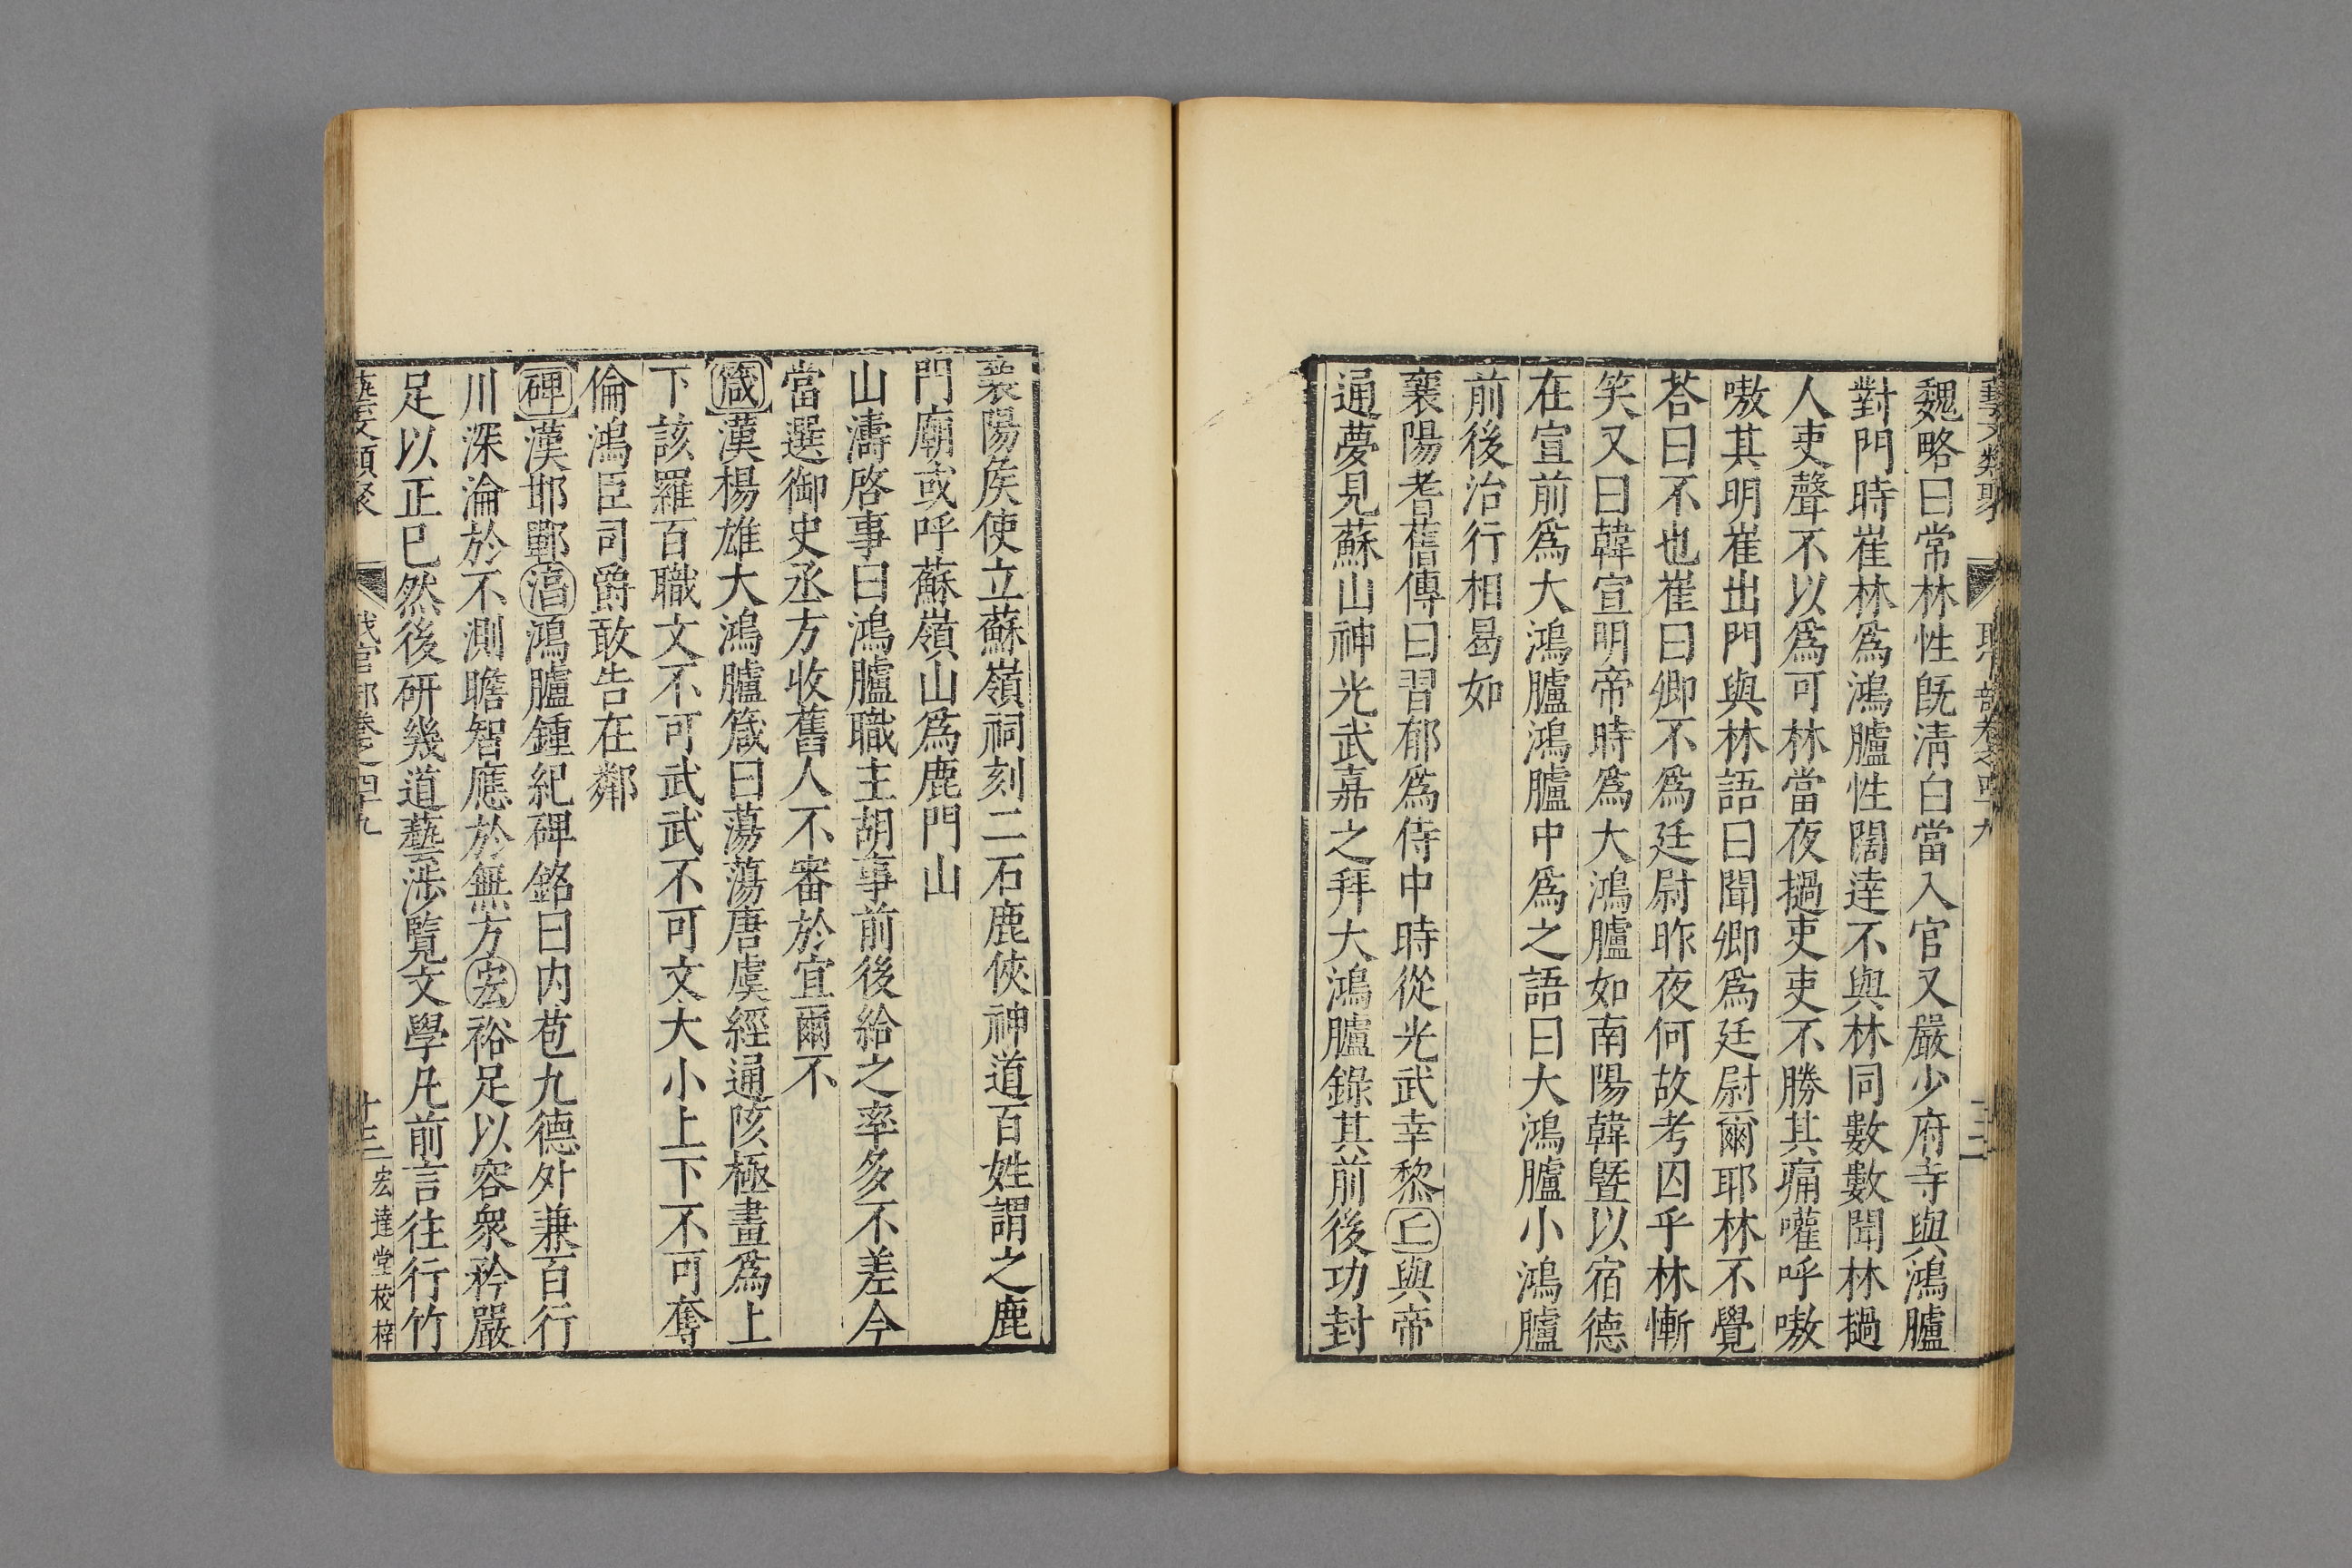 藝文類聚 職官部卷之四十九 十二
魏略曰常林性旣淸白當入官又嚴少府寺與鴻臚
對門時崔林爲鴻臚性闊達不與林同數數聞林撾
人吏聲不以爲可林當夜撾吏吏不勝其痛嚾呼嗷
嗷其明崔出門與林語曰聞卿爲廷尉爾耶林不覺
荅曰不也崔曰卿不爲廷尉昨夜何故考囚乎林慚
笑又曰韓宣明帝時爲大鴻臚如南陽韓曁以宿德
在宣前爲大鴻臚鴻臚中爲之語曰大鴻臚小鴻臚
前後治行相曷如
襄陽耆舊傳曰習郁爲侍中時從光武幸黎丘與帝
通夢見蘇山神光武嘉之拜大鴻臚錄其前後功封
襄陽矦使立蘇嶺祠刻二石鹿俠神道百姓謂之鹿
門廟或呼蘇嶺山爲鹿門山
山濤啓事曰鴻臚職主胡事前後給之率多不差今
當選御史丞方收舊人不審於宜爾不
箴漢楊雄大鴻臚箴曰蕩蕩唐虞經通陔極畫爲上
下該羅百職文不可武武不可文大小上下不可奪
倫鴻臣司爵敢告在鄰
碑漢邯鄲淳鴻臚鍾紀碑銘曰内苞九德外兼百行
川深淪於不測瞻智應於無方宏裕足以容衆矜嚴
足以正己然後研幾道藝涉覽文學凡前言往行竹
藝文類聚 職官部卷之四十九 十三 宏達堂校梓